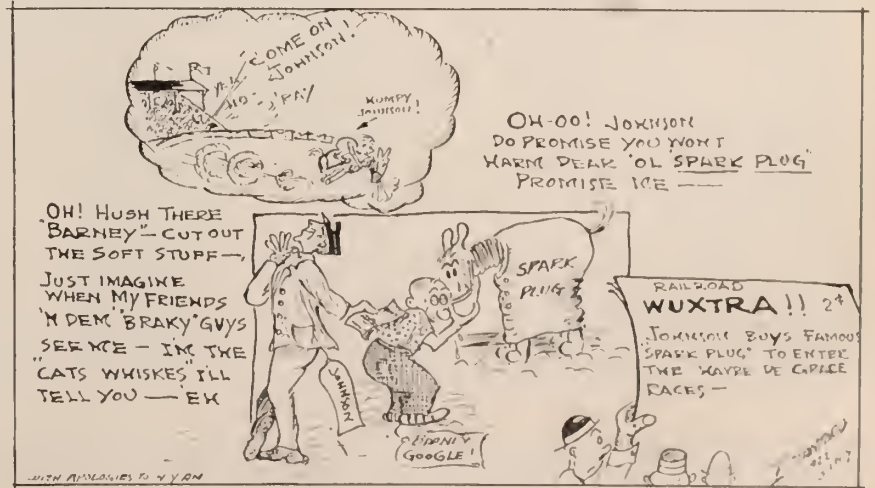 COME ON
JOHNSON!
YEA
'RAY
HUMPY
JOHNSON!
OH-OO! JOHNSON
DO PROMISE YOU WONT
HARM DEAR 'OL SPARK PLUG"
PROMISE ME —
OH! HUSH THERE
"BARNEY" — CUT OUT
THE SOFT STUFF —,
JUST IMAGINE
WHEN MY FRIENDS
'N DEM "BRAKY" GUYS
SEE ME — I'M THE
"CATS WHISKES" I'LL
TELL YOU — 'EH
SPARK
PLUG
JOHNSON
BARNEY
GOOGLE!
RAILROAD
WUXTRA!! 2¢
JOHNSON BUYS FAMOUS
"SPARK PLUG" TO ENTER
THE HAVRE DE GRACE
RACES —
WITH APOLOGIES TO